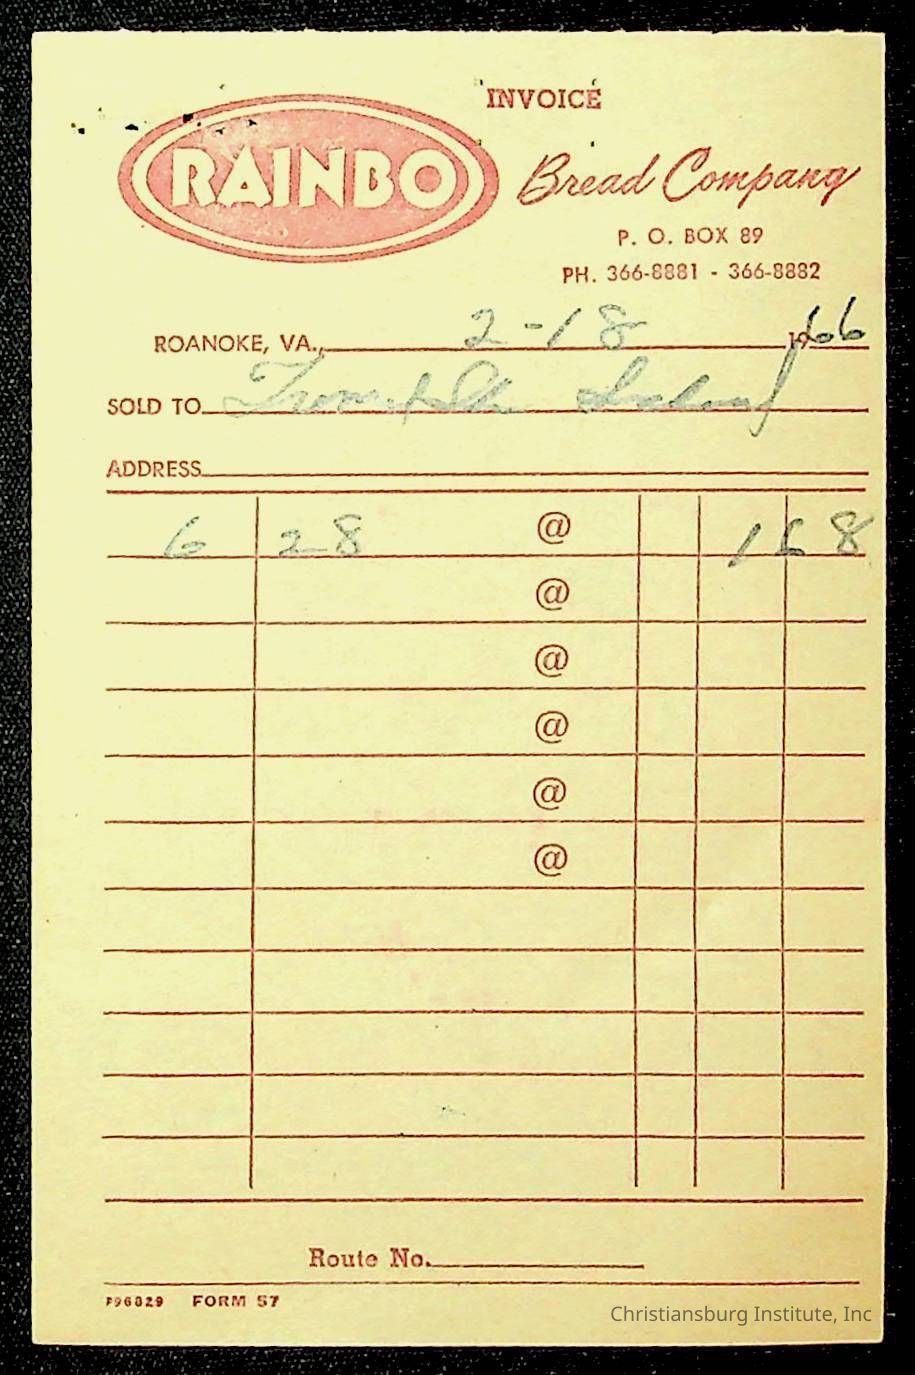 INVOICE
RAINBO
Bread Company
P. O. BOX 89
PH. 366-8881 - 366-8882
ROANOKE, VA., 2-18 1966
SOLD TO
ADDRESS
6 28 @ 1 68
@
@
@
@
@
Route No.
P96029 FORM 57
Christiansburg Institute, Inc